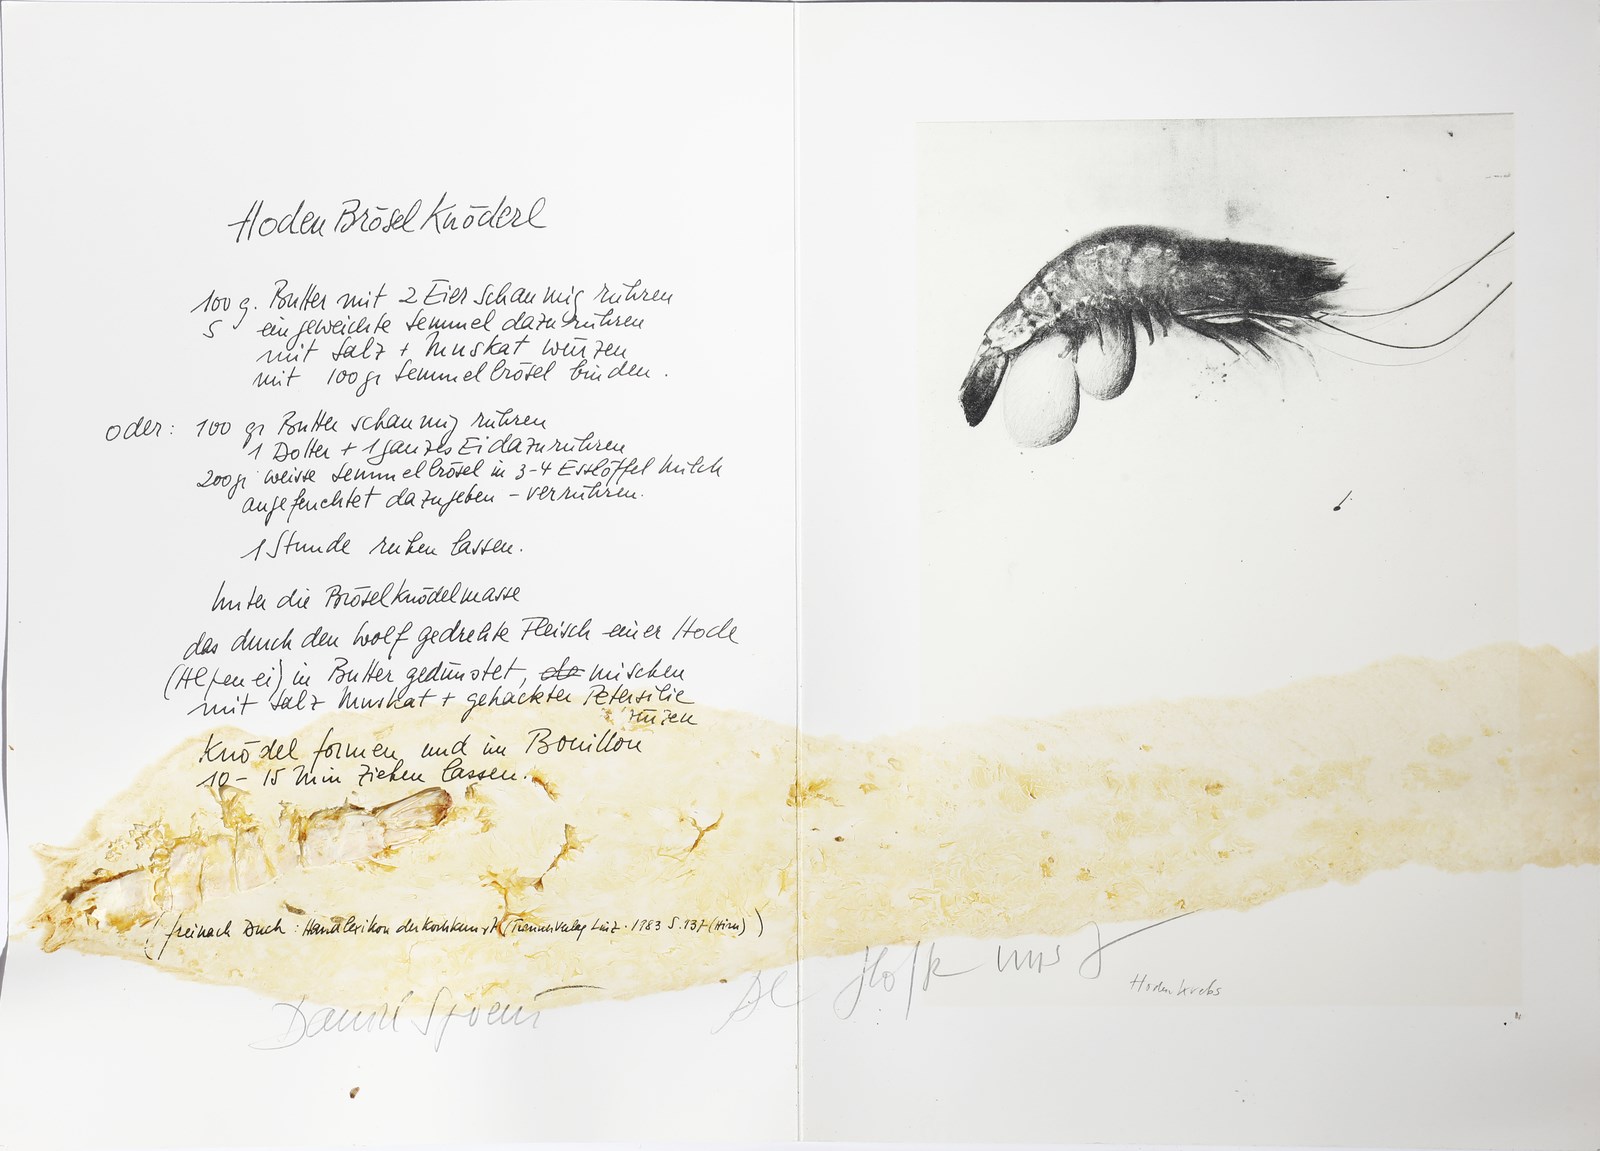 HodenBröselKnöderl
100 g. Butter mit 2 Eier schaumig rühren
5 eingeweichte Semmel dazurühren
mit Salz + Muskat würzen
mit 100 gr Semmelbrösel binden.
oder: 100 gr Butter schaumig rühren
1 Dotter + 1 ganzes Ei dazurühren
200 gr weisse Semmelbrösel in 3-4 Esslöffel Milch
angefeuchtet dazugeben - verrühren.
1 Stunde ruhen lassen.
Unter die Bröselknödelmasse
das durch den Wolf gedrehte Fleisch einer Hode
in Butter gedünstet, mischen
mit Salz Muskat + gehackter Petersilie
Knödel formen und im Bouillon
10 - 15 Min ziehen lassen.
(frei nach Duch: Handlexikon der Kochkunst (Traunerverlag Linz. 1983 S. 937 (Hirn))
Daniel Spoerri
Hodenkrebs